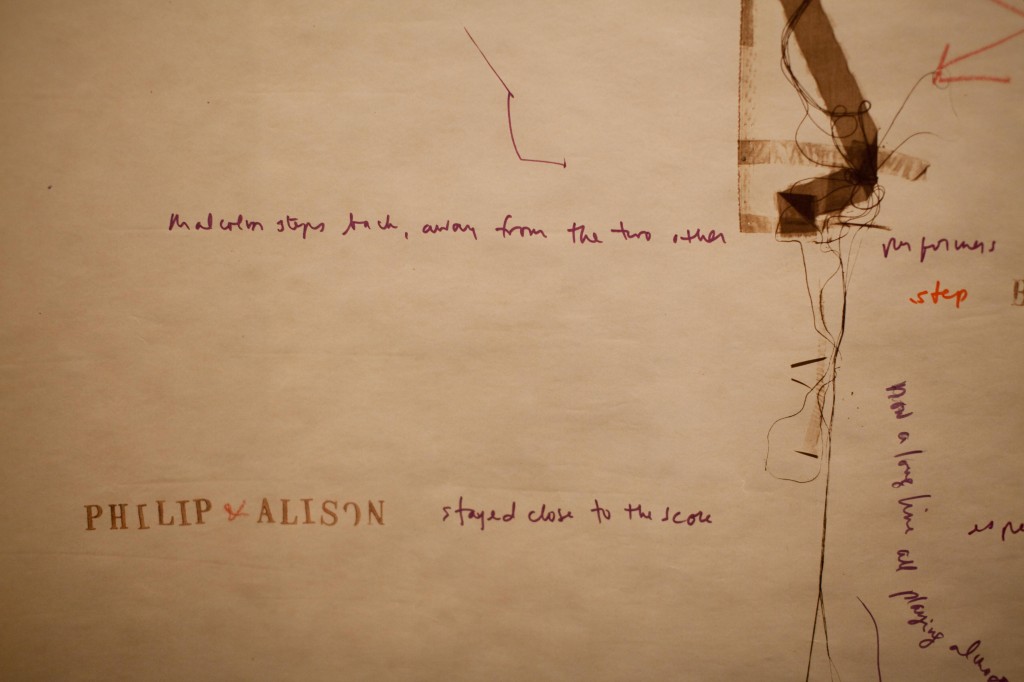 Malcolm steps back, away from the two other performers
step
PHILIP & ALISON stayed close to the score
now a long line all playing